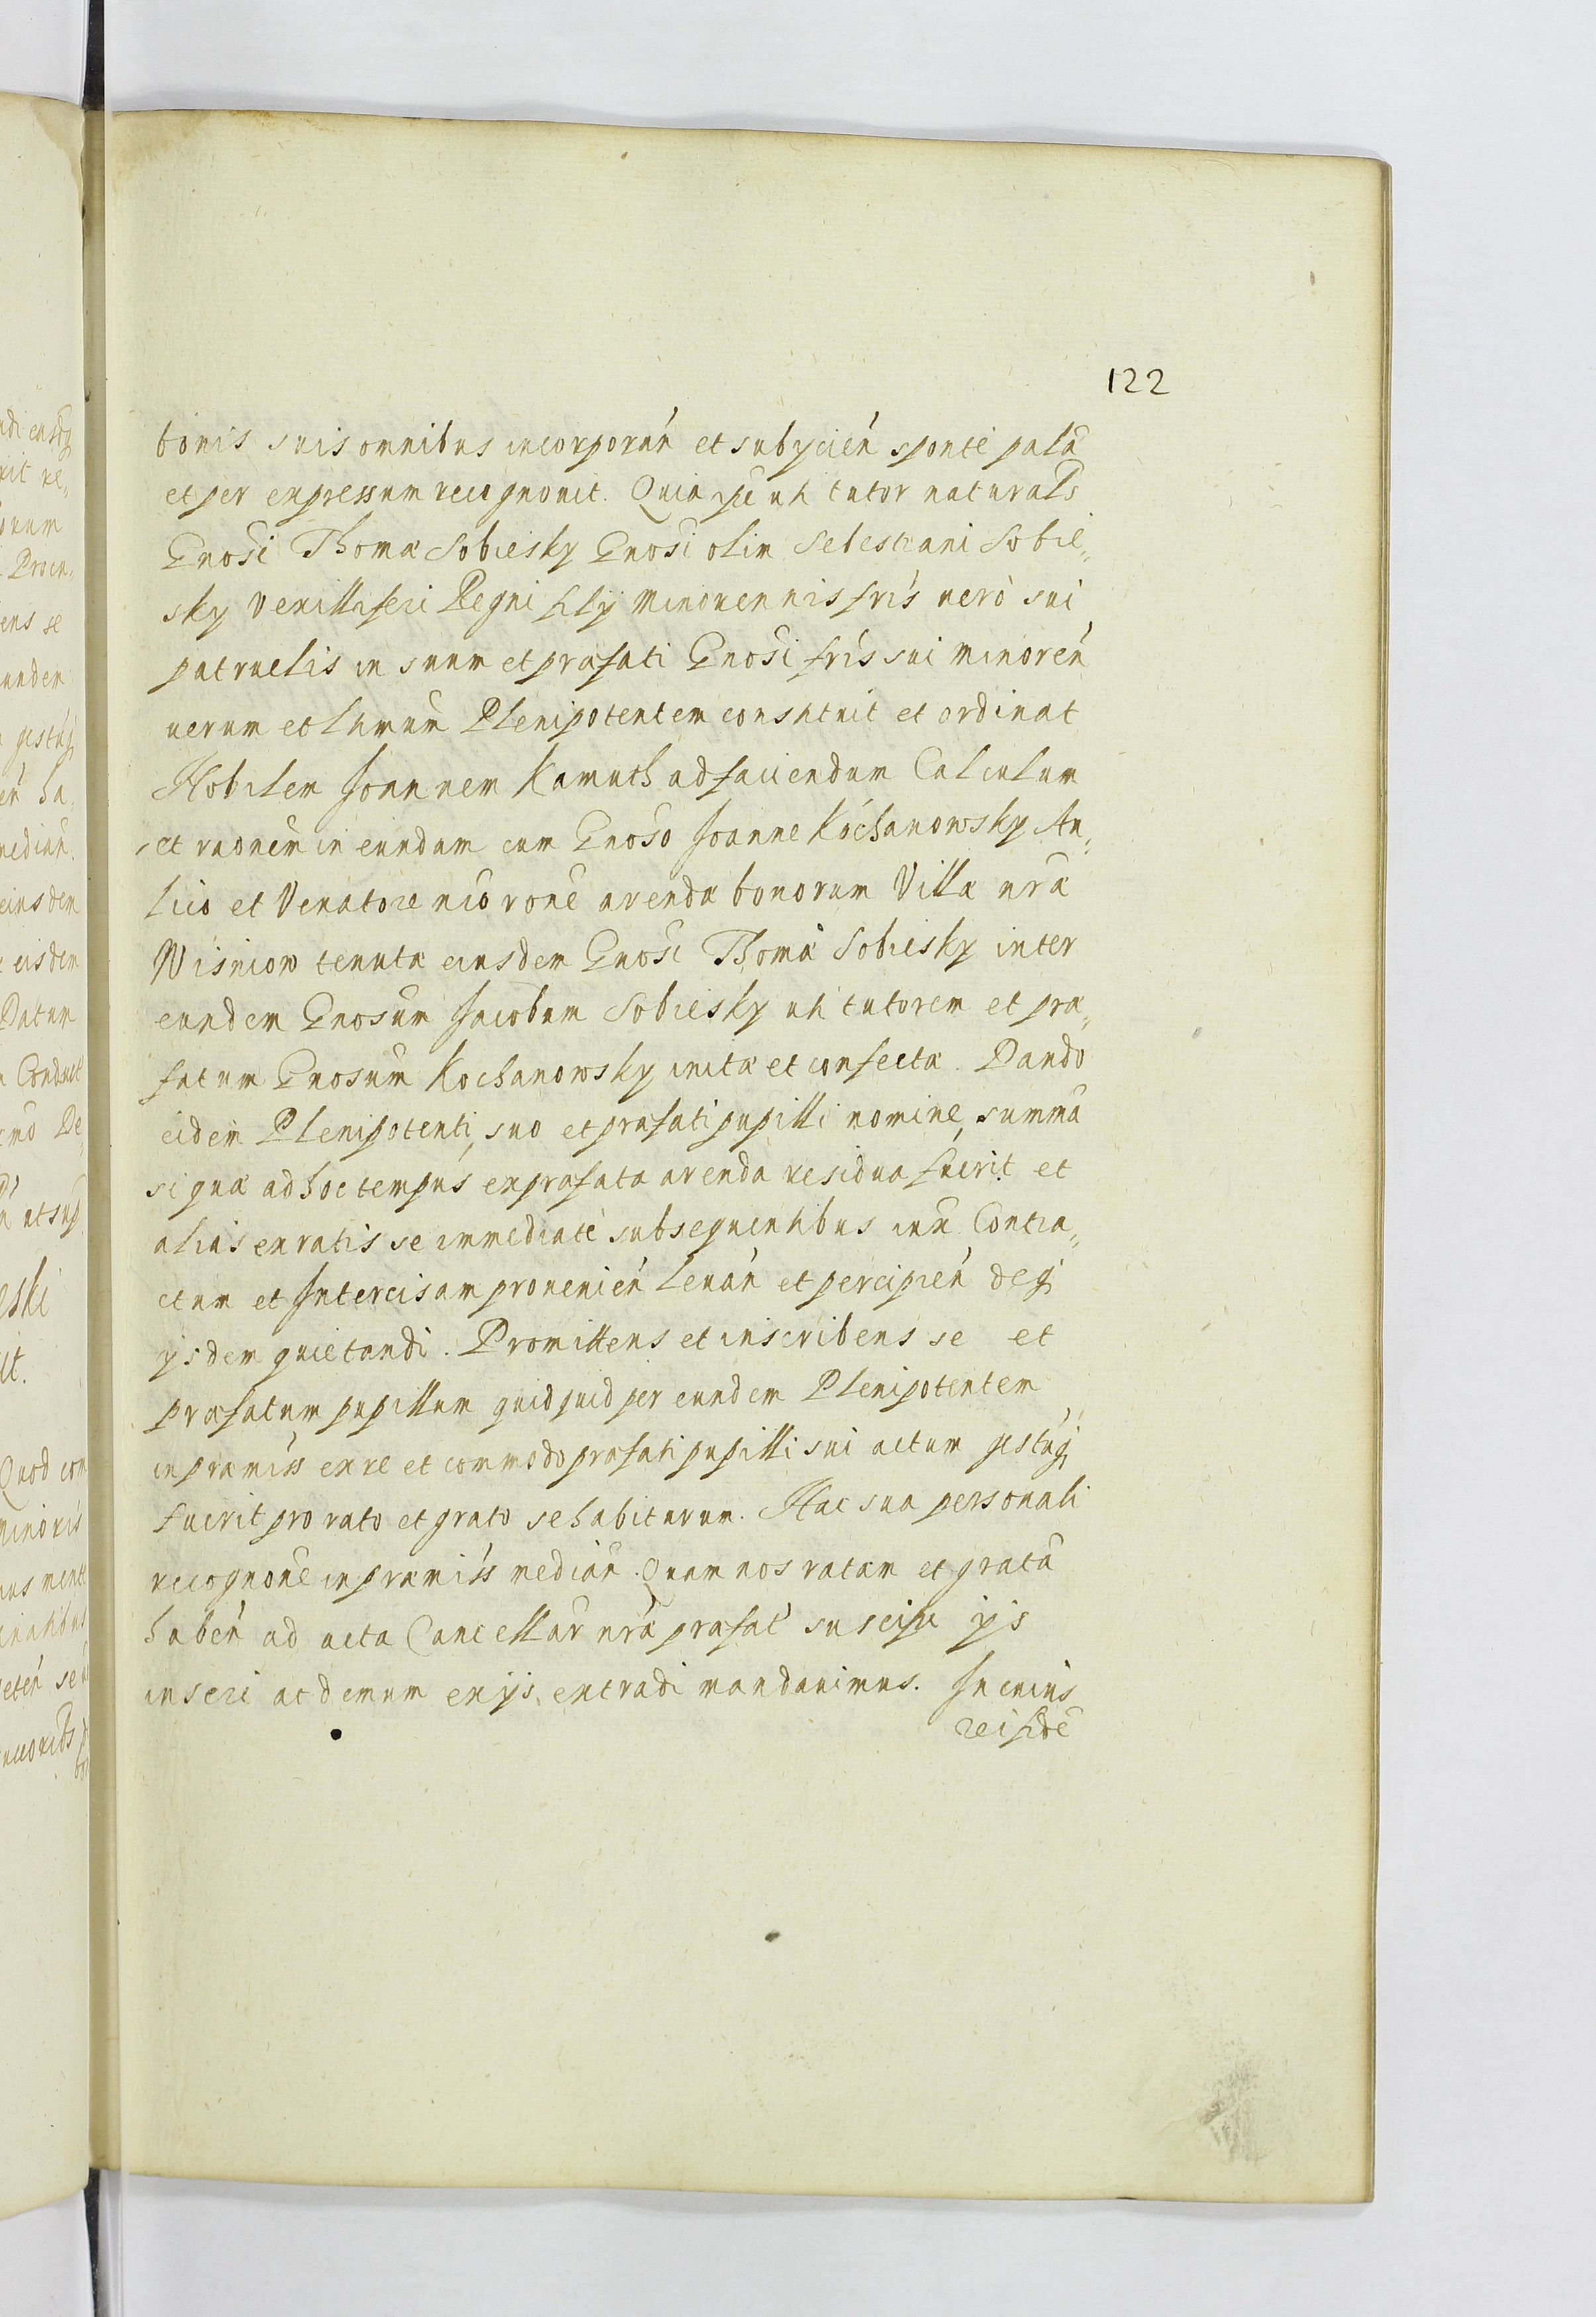 122
bonis suis omnibus incorporań et subycień sponte palā
et per expressum recognouit. Quia ipse uti tutor naturalis
Gnosi Thomæ Sobiesky Gnosi olim Sebestiani Sobie„
sky Vexilliferi Regni fily minorennis fris uero sui
patruelis in suum et præfati Gnosi fris sui minoreń
uerum et ltimum Plenipotentem constituit et ordinat
Nobilem Joannem Kamuth ad faciendum Calculum
et raonem ineundam cum Gnoso Joanne Kochanowsky Au„
lico et Venatore nro rone arendæ bonorum Villæ nræ
Wisniow tenutæ eiusdem Gnosi Thomæ Sobiesky inter
eundem Gnosum Jacobum Sobiesky uti tutorem et præ„
fatum Gnosum Kochanowsky initæ et confectæ. Dando
eidem Plenipotenti, suo et præfati pupilli nomine, summā
si quæ ad hoc tempus ex præfata arenda residua fuerit et
alias ex ratis se immediatè subsequentibus iux Contra„
ctum et Intercisam prouenień leuań et percipień deq́
ysdem quietandi. Promittens et inscribens se et
præfatum pupillum quidquid per eundem Plenipotentem
in præmiss ex re et commodo præfati pupilli sui actum gestúq́
fuerit pro rato et grato se habiturum. Hac sua personali
recognone in præmiss median. Quam nos ratam et gratā
habeń ad acta Cancellar nræ præfat suscipi ijs
inseri ac demum ex ijs extradi mandauimus. In cuius
rei fidē